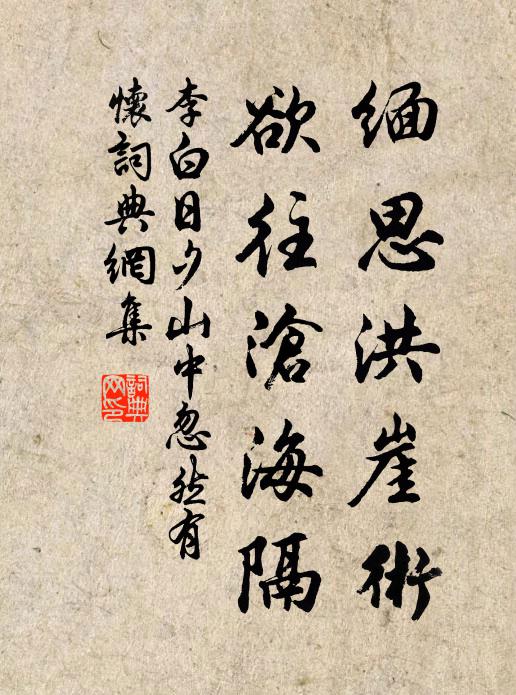 缅思洪崖術
欲往滄海隔
李白日夕山中忽然有
懷詞典網集
詞典网印